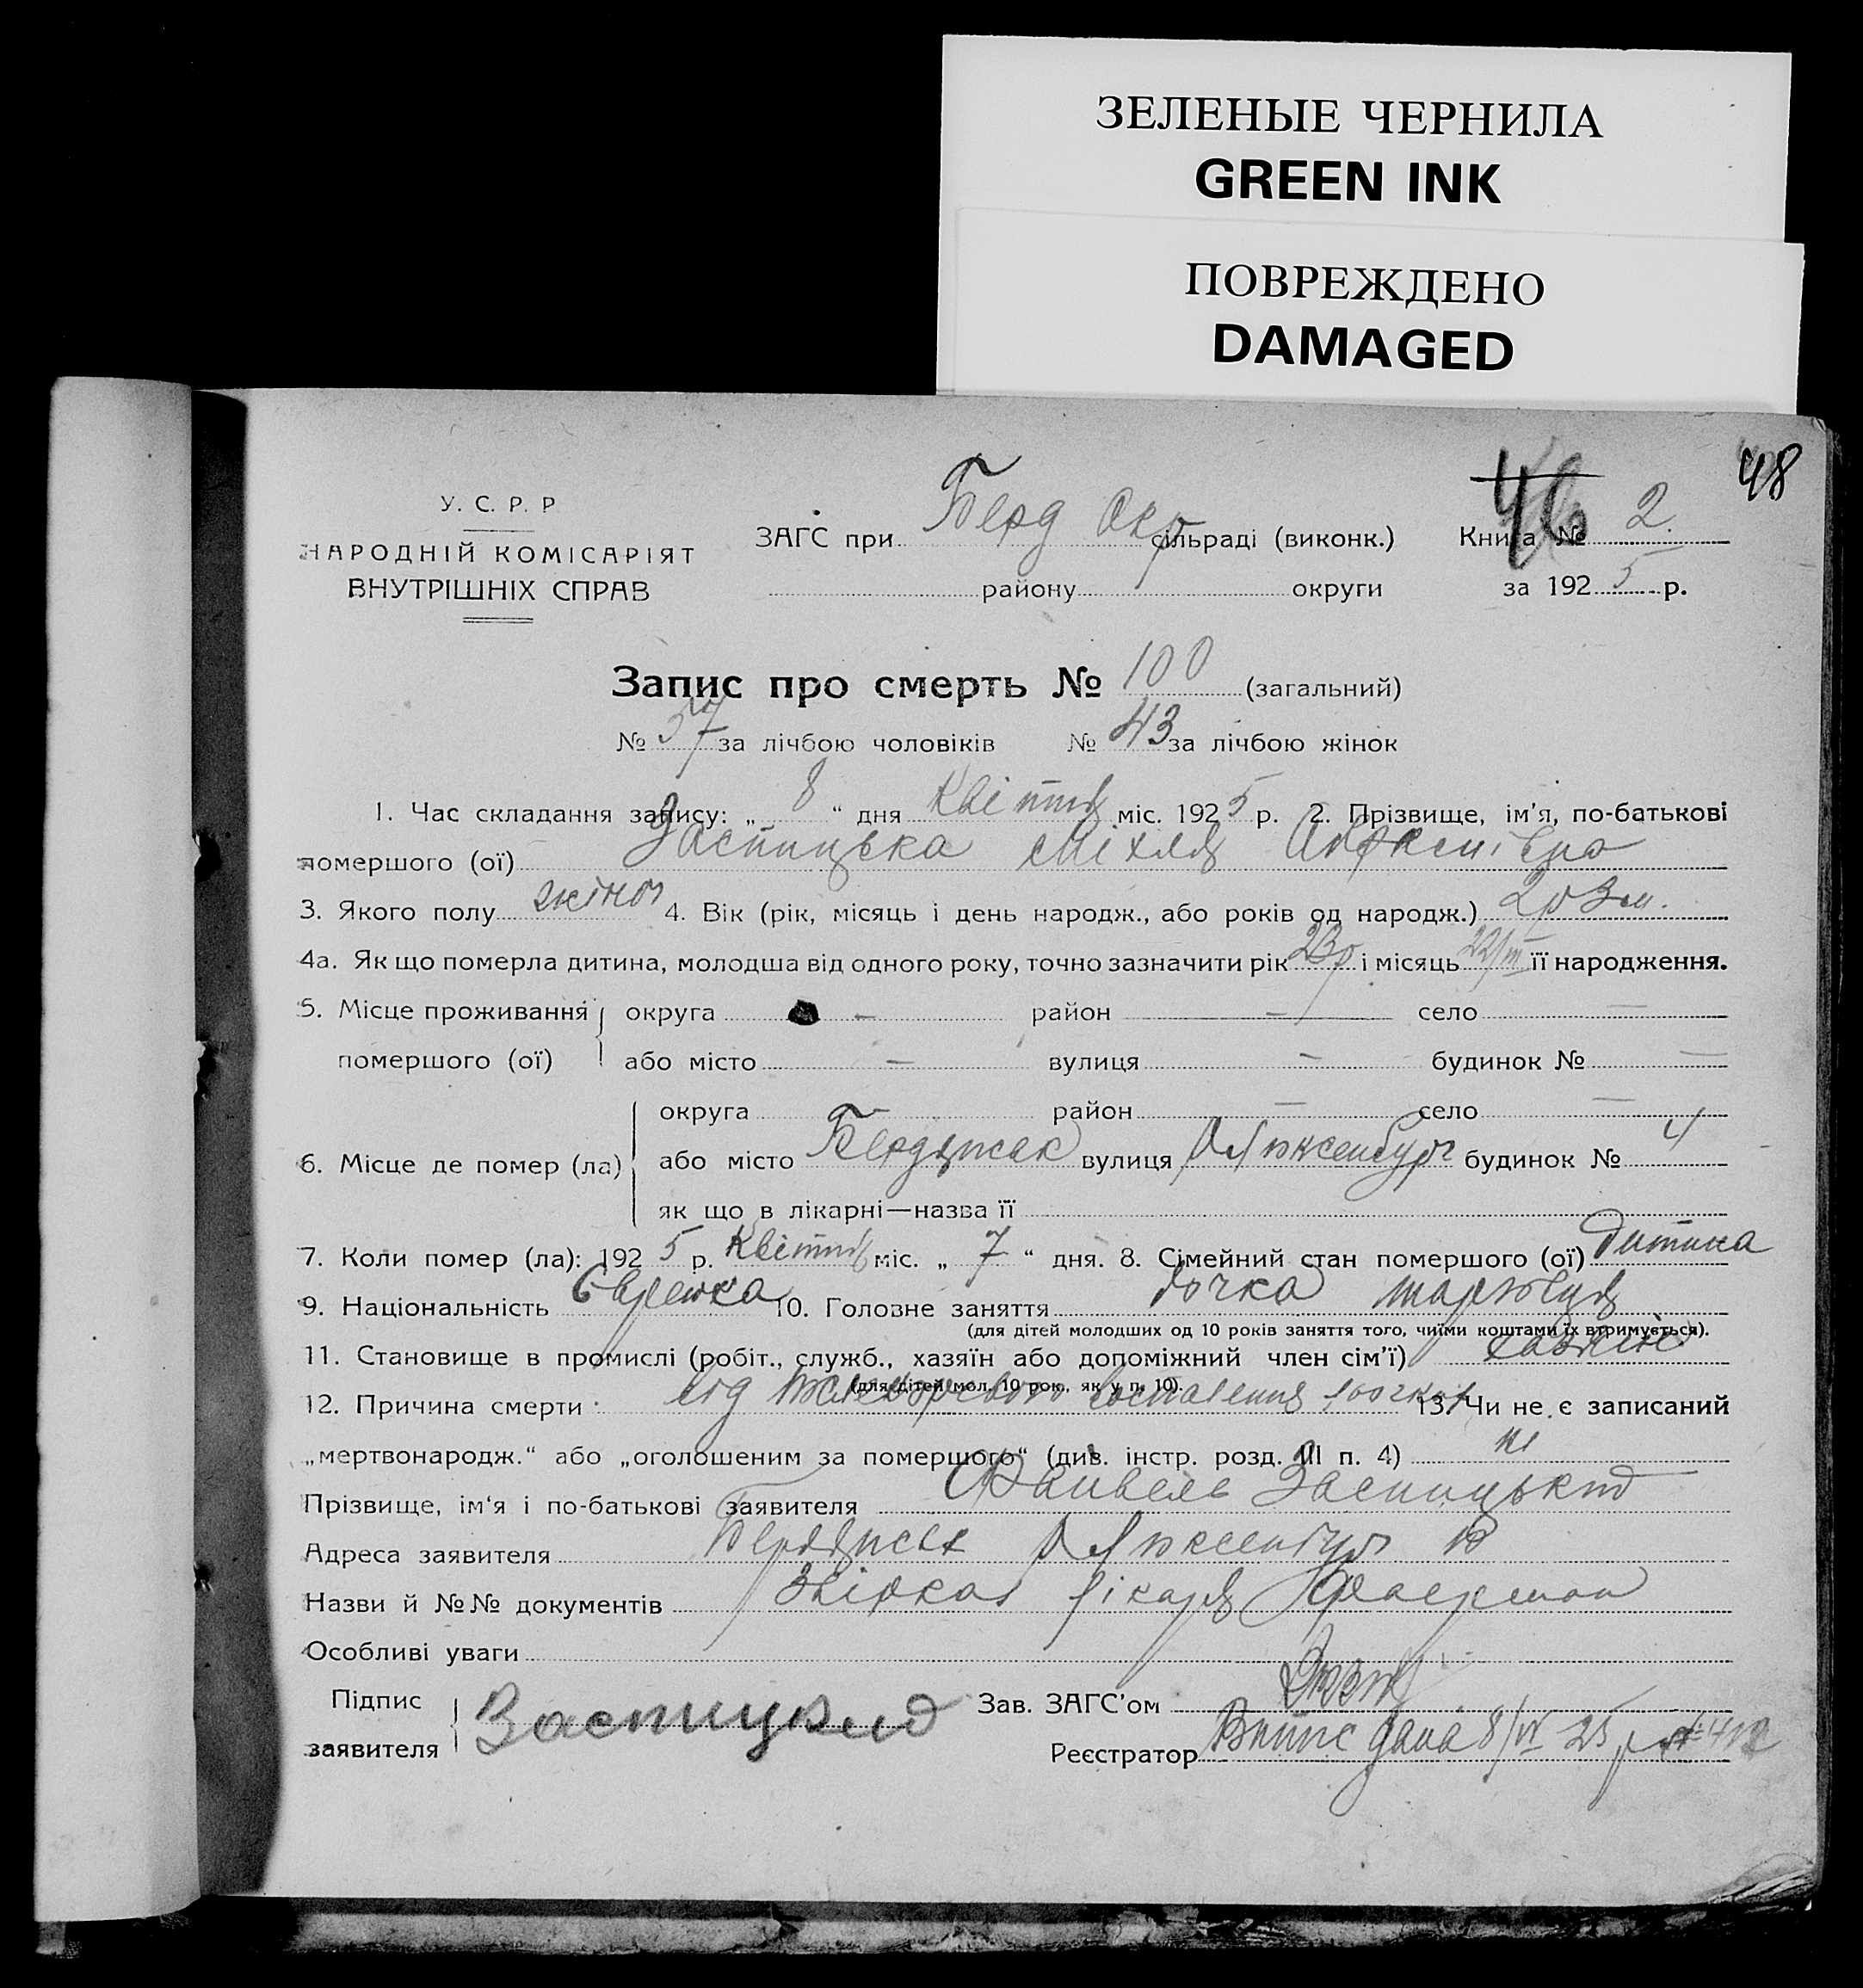 ЗЕЛЕНЫЕ ЧЕРНИЛА
GREEN INK
ПОВРЕЖДЕНО
DAMAGED
48
46
У. С. Р. Р
НАРОДНІЙ КОМІСАРІЯТ
ВНУТРІШНІХ СПРАВ
ЗАГС при Берд Окр сільраді (виконк.) Книга № 2.
району округи за 1925 р.
Запис про смерть № 100 (загальний)
№ 57 за лічбою чоловіків № 43 за лічбою жінок
1. Час складання запису: „ 8 “ дня Квітня міс. 1925 р. 2. Прізвище, ім'я, по-батькові
помершого (ої) Заспицька
3. Якого полу жіноч 4. Вік (рік, місяць і день народж., або років од народж.) 2 р
4а. Як що померла дитина, молодша від одного року, точно зазначити рік 23 р і місяць 22/III її народження.
5. Місце проживання округа — район — село —
помершого (ої) або місто — вулиця — будинок № —
округа — район — село —
6. Місце де помер (ла) або місто Бердянськ вулиця Р Люксенбург будинок № 4
як що в лікарні—назва її
7. Коли помер (ла): 1925 р. Квітня міс. „ 7 “ дня. 8. Сімейний стан помершого (ої) дитина
9. Національність Єврейка 10. Головне заняття дочка торговця
(для дітей молодших од 10 років заняття того, чиїми коштами їх втримується).
11. Становище в промислі (робіт., служб., хазяїн або допоміжний член сім'ї) хазяїн
(для дітей мол. 10 рок., як у п. 10).
12. Причина смерти від 13. Чи не є записаний
„мертвонародж.“ або „оголошеним за помершого“ (див. інстр. розд. III п. 4) ні
Прізвище, ім'я і по-батькові заявителя Файвель Заспицький
Адреса заявителя Бердянськ Р Люксенбург
Назви й №№ документів лікаря
Особливі уваги
Підпис Зав. ЗАГС'ом
заявителя Реєстратор Витяг дана 8/IV 25 р